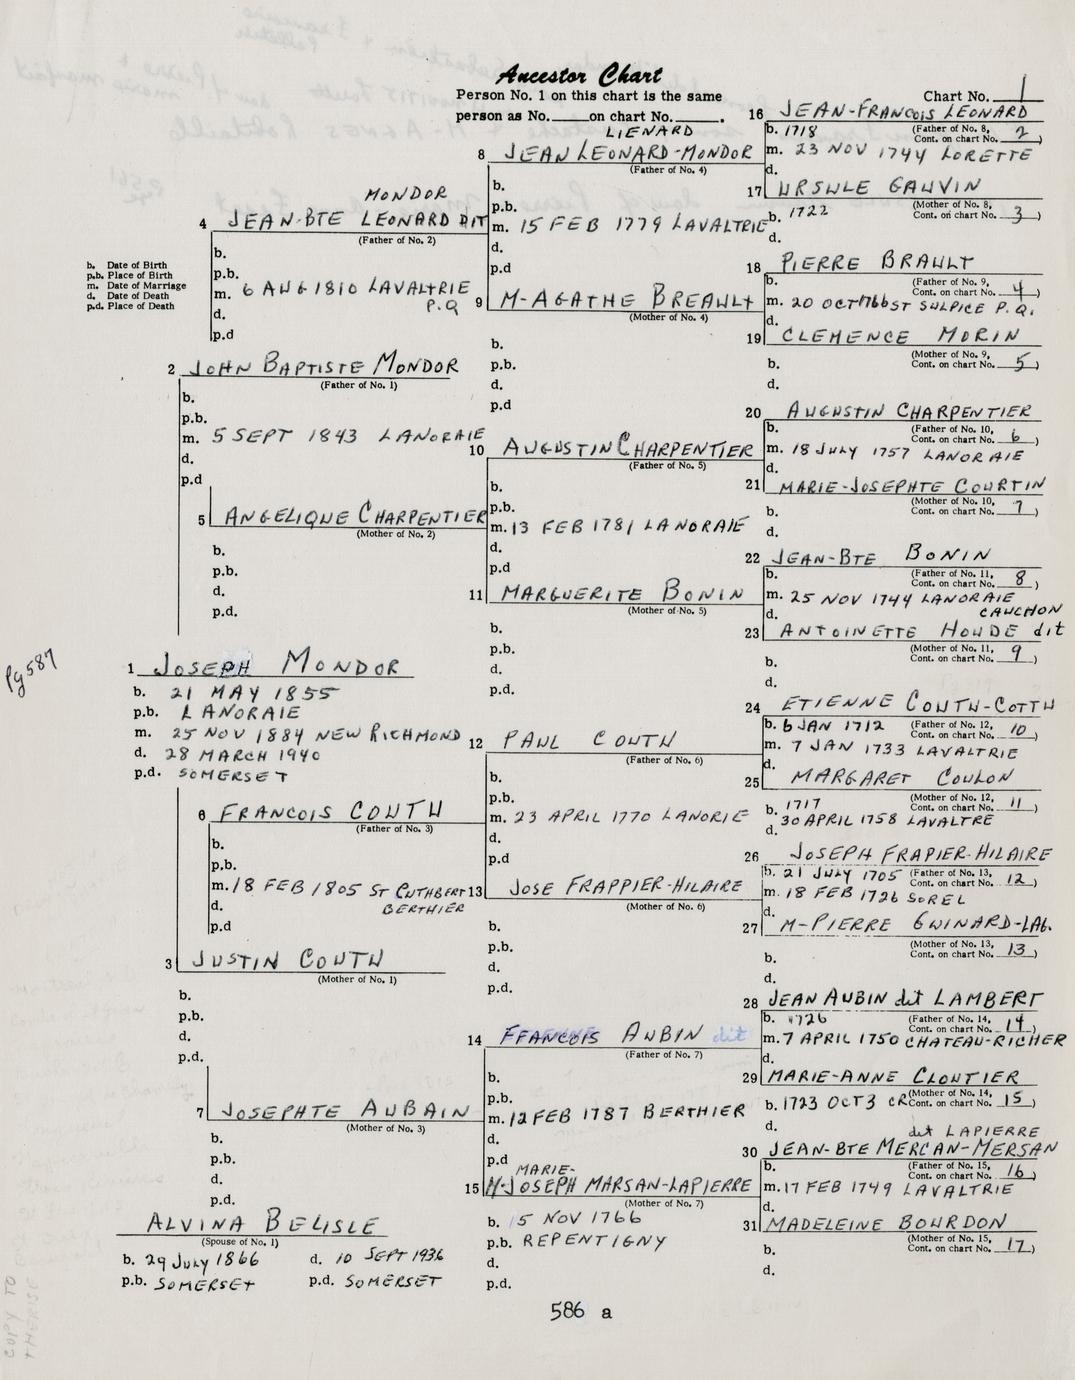 Ancestor Chart
Person No. 1 on this chart is the same
person as No. on chart No. .
Chart No. 1
b. Date of Birth
p.b. Place of Birth
m. Date of Marriage
d. Date of Death
p.d. Place of Death
Pg 587
1 JOSEPH MONDOR
b. 21 MAY 1855
p.b. LANORAIE
m. 25 NOV 1884 NEW RICHMOND
d. 28 MARCH 1940
p.d. SOMERSET
ALVINA BELISLE
(Spouse of No. 1)
b. 29 July 1866 d. 10 SEPT 1936
p.b. SOMERSET p.d. SOMERSET
2 JOHN BAPTISTE MONDOR
(Father of No. 1)
b.
p.b.
m. 5 SEPT 1843 LANORAIE
d.
p.d
3 JUSTIN COUTU
(Mother of No. 1)
b.
p.b.
d.
p.d.
MONDOR
4 JEAN-BTE LEONARD DIT
(Father of No. 2)
b.
p.b.
m. 6 AUG 1810 LAVALTRIE
P.Q
d.
p.d
5 ANGELIQUE CHARPENTIER
(Mother of No. 2)
b.
p.b.
d.
p.d.
6 FRANCOIS COUTU
(Father of No. 3)
b.
p.b.
m. 18 FEB 1805 ST CUTHBERT
BERTHIER
d.
p.d
7 JOSEPHTE AUBAIN
(Mother of No. 3)
b.
p.b.
d.
p.d.
LIENARD
8 JEAN LEONARD-MONDOR
(Father of No. 4)
b.
p.b.
m. 15 FEB 1779 LAVALTRIE
d.
p.d
9 M-AGATHE BREAULT
(Mother of No. 4)
b.
p.b.
d.
p.d
10 AUGUSTIN CHARPENTIER
(Father of No. 5)
b.
p.b.
m. 13 FEB 1781 LANORAIE
d.
p.d
11 MARGUERITE BONIN
(Mother of No. 5)
b.
p.b.
d.
p.d.
12 PAUL COUTU
(Father of No. 6)
b.
p.b.
m. 23 APRIL 1770 LANORIE
d.
p.d
13 JOSE FRAPPIER-HILAIRE
(Mother of No. 6)
b.
p.b.
d.
p.d.
14 FRANCOIS AUBIN dit
(Father of No. 7)
b.
p.b.
m. 12 FEB 1787 BERTHIER
d.
p.d
MARIE-
15 M-JOSEPH MARSAN-LAPIERRE
(Mother of No. 7)
b. 5 NOV 1766
p.b. REPENTIGNY
d.
p.d.
16 JEAN-FRANCOIS LEONARD
b. 1718 (Father of No. 8,
Cont. on chart No. 2)
m. 23 NOV 1744 LORETTE
d.
17 URSULE GAUVIN
b. 1722 (Mother of No. 8,
Cont. on chart No. 3)
d.
18 PIERRE BRAULT
b. (Father of No. 9,
Cont. on chart No. 4)
m. 20 OCT 1766 ST SULPICE P.Q.
d.
19 CLEMENCE MORIN
b. (Mother of No. 9,
Cont. on chart No. 5)
d.
20 AUGUSTIN CHARPENTIER
b. (Father of No. 10,
Cont. on chart No. 6)
m. 18 JULY 1757 LANORAIE
d.
21 MARIE-JOSEPHTE COURTIN
b. (Mother of No. 10,
Cont. on chart No. 7)
d.
22 JEAN-BTE BONIN
b. (Father of No. 11,
Cont. on chart No. 8)
m. 25 NOV 1744 LANORAIE
d. CAUCHON
23 ANTOINETTE HOUDE dit
b. (Mother of No. 11,
Cont. on chart No. 9)
d.
24 ETIENNE COUTU-COTTU
b. 6 JAN 1712 (Father of No. 12,
Cont. on chart No. 10)
m. 7 JAN 1733 LAVALTRIE
d.
25 MARGARET COULON
b. 1717 (Mother of No. 12,
Cont. on chart No. 11)
d. 30 APRIL 1758 LAVALTRE
26 JOSEPH FRAPIER-HILAIRE
b. 21 JULY 1705 (Father of No. 13,
Cont. on chart No. 12)
m. 18 FEB 1726 SOREL
d.
27 M-PIERRE GUINARD-LAB.
b. (Mother of No. 13,
Cont. on chart No. 13)
d.
28 JEAN AUBIN dit LAMBERT
b. 1726 (Father of No. 14,
Cont. on chart No. 14)
m. 7 APRIL 1750 CHATEAU-RICHER
d.
29 MARIE-ANNE CLOUTIER
b. 1723 OCT 3 CR (Mother of No. 14,
Cont. on chart No. 15)
d.
dit LAPIERRE
30 JEAN-BTE MERCAN-MERSAN
b. (Father of No. 15,
Cont. on chart No. 16)
m. 17 FEB 1749 LAVALTRIE
d.
31 MADELEINE BOURDON
b. (Mother of No. 15,
Cont. on chart No. 17)
d.
586 a
COPY TO